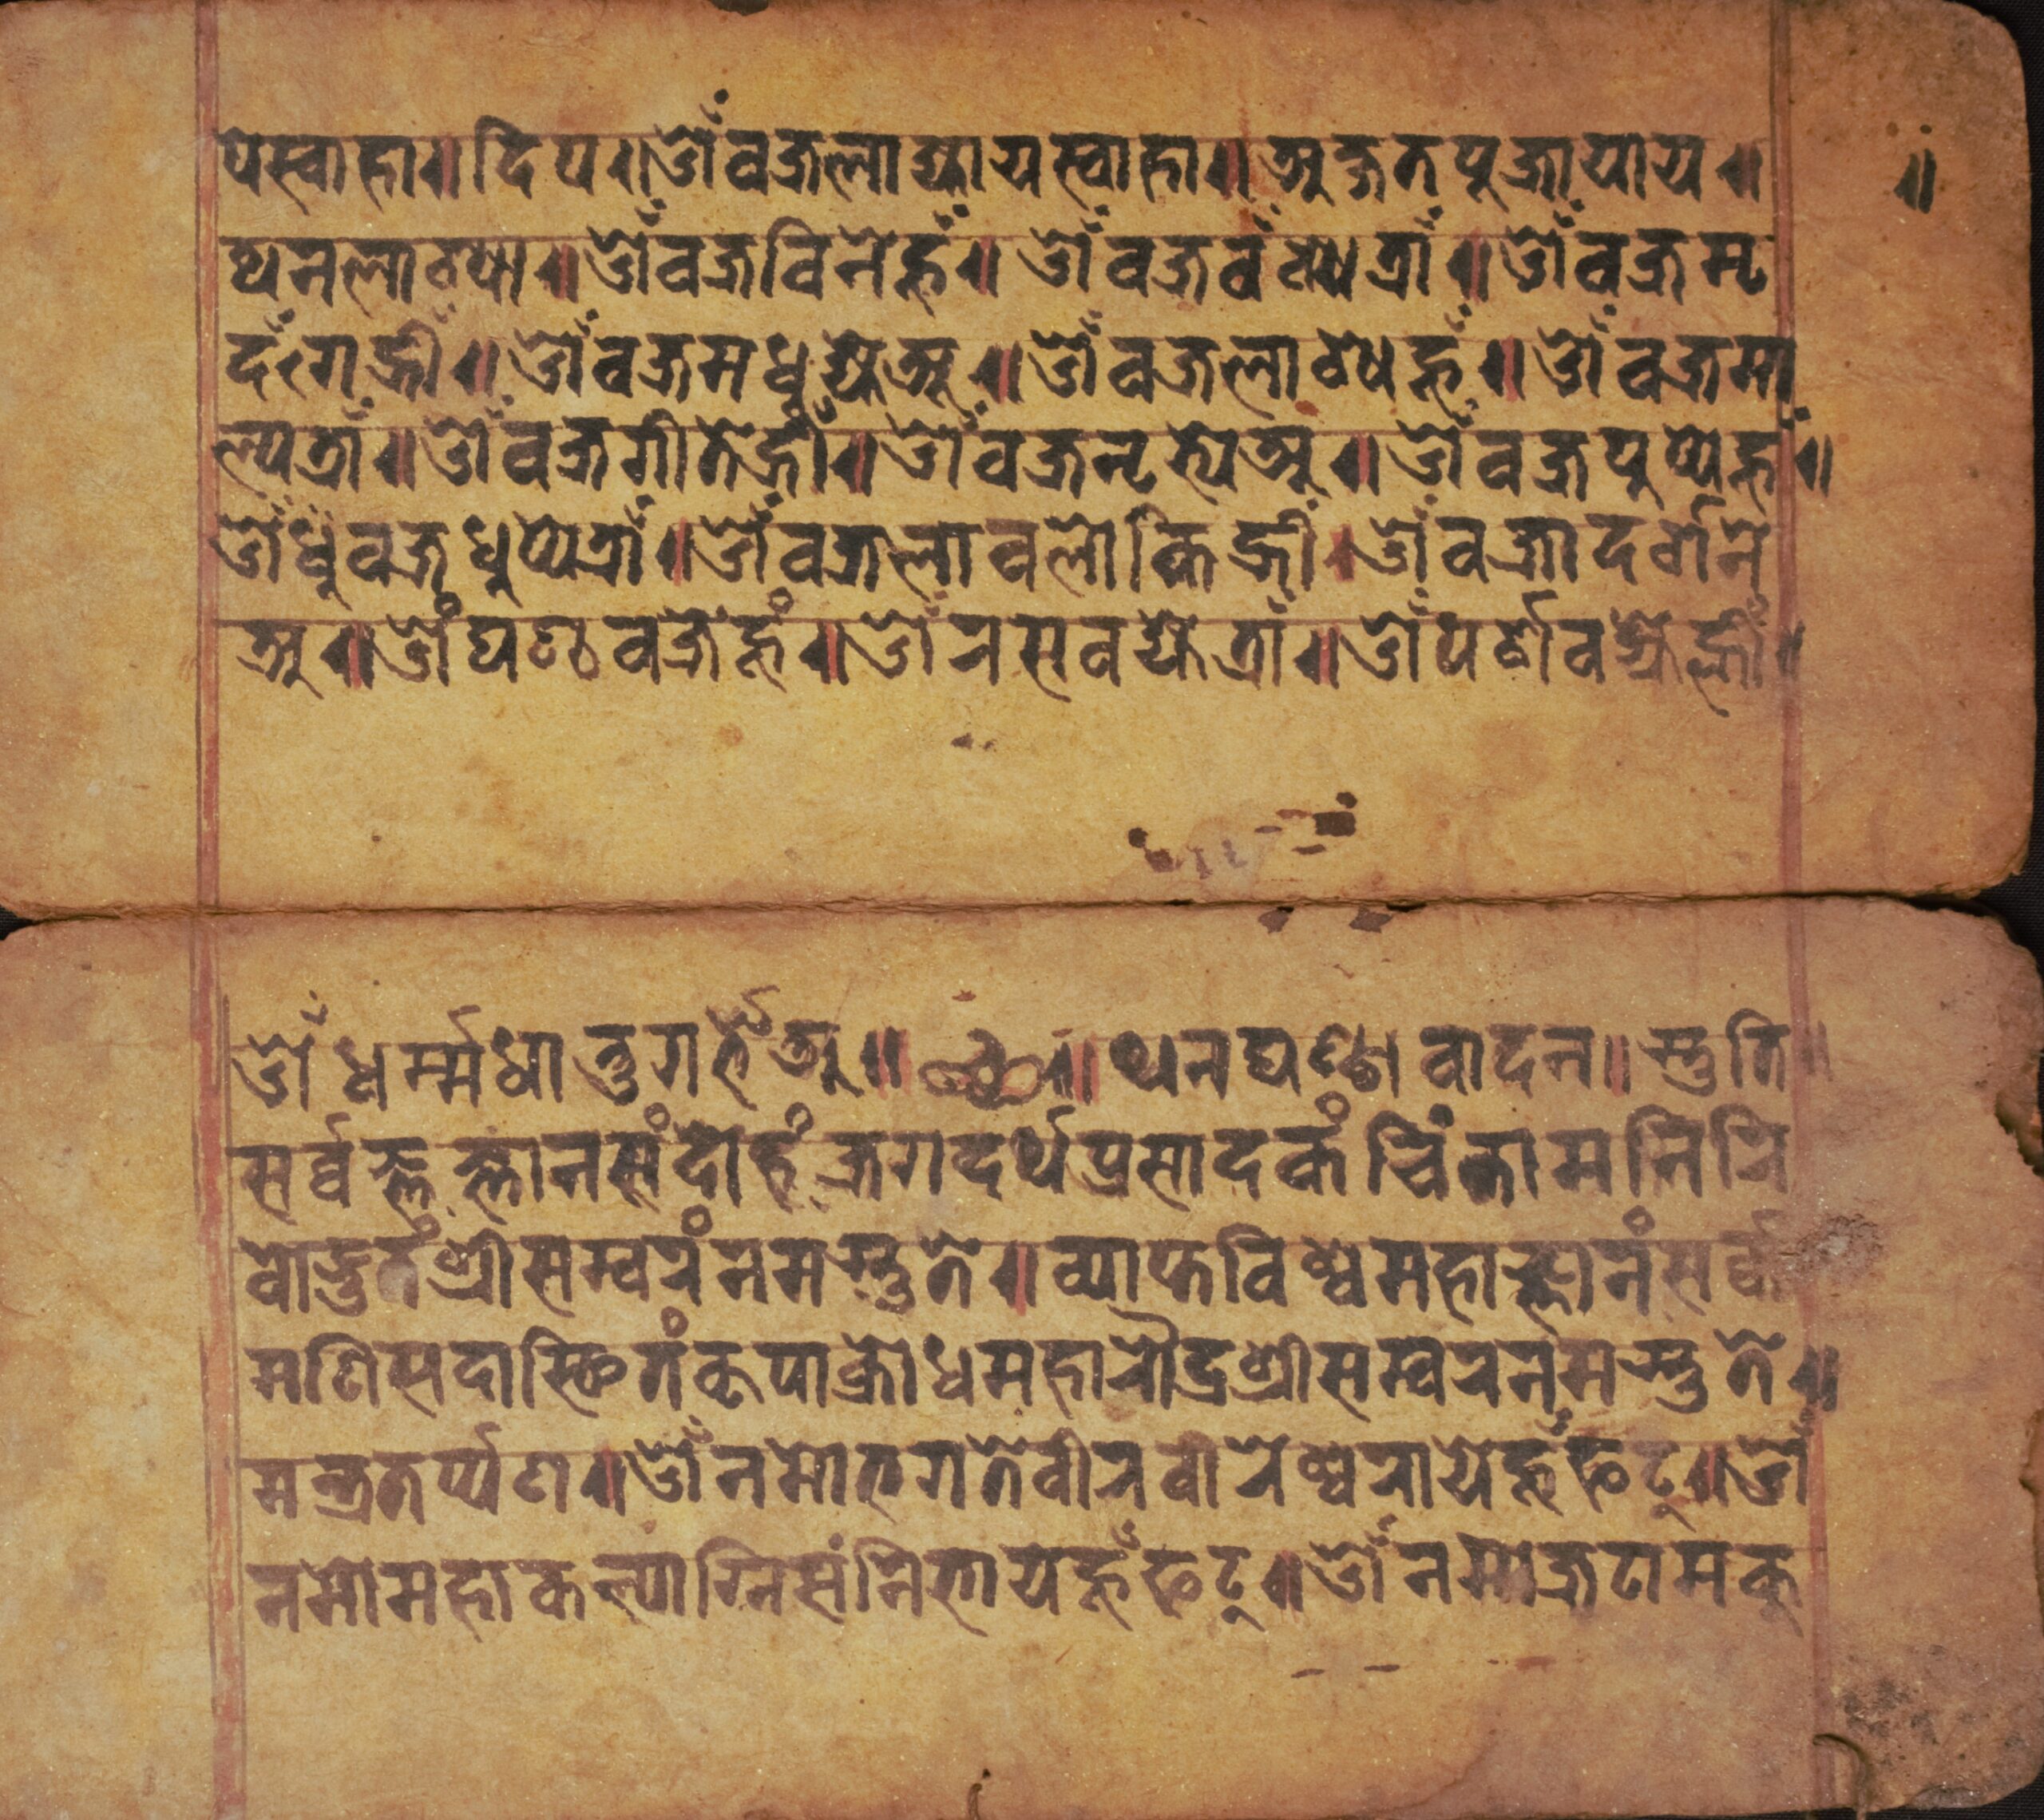 पेस्वाहा॥दिप॥ॐवज्रलाज्यायस्वाहा॥अक्षतपुजायाय॥ ॥
थनलाश्या॥ॐवज्रविनेहुँ॥ॐवज्रवंश्येत्राँ॥ॐवज्रमृ
दंगह्रीँ॥ॐवज्रमधुज्येअ॥ॐवज्रलाश्येहुँ॥ॐवज्रमा
ल्यत्राँ॥ॐवज्रगीतेह्रीँ॥ॐवज्रनृत्येअ॥ॐवज्रपुष्पेहुँ॥
ॐवज्रधुप्येत्राँ॥ॐवज्रलावलोकिह्रीँ॥ॐवज्रादर्शने
अ॥ॐघण्ठवज्रेहुँ॥ॐरसवज्रेत्राँ॥ॐपर्शवज्रेह्रीँ॥
ॐधर्म्मधातुगर्भेअ॥ ॥थनघण्ठवादन॥स्तुति॥
सर्व्वज्ञज्ञानसंदोहंजगदर्थप्रसादकंचिंतामनिरि
वोद्भुतंश्रीसम्वरंनमस्तुते॥व्याप्तविश्वमहाज्ञानंसर्व्वा
मणिसदास्थितंकृपाक्रोधमहारौद्रश्रीसम्वरनमस्तुते॥
मन्त्रतर्प्पण॥ॐनमोभगतेवीरवीरेश्वरायेहुँफट्॥ॐ
नमोमहाकल्पाग्निसंनिभायहुँफट्॥ॐनमोजटामकु